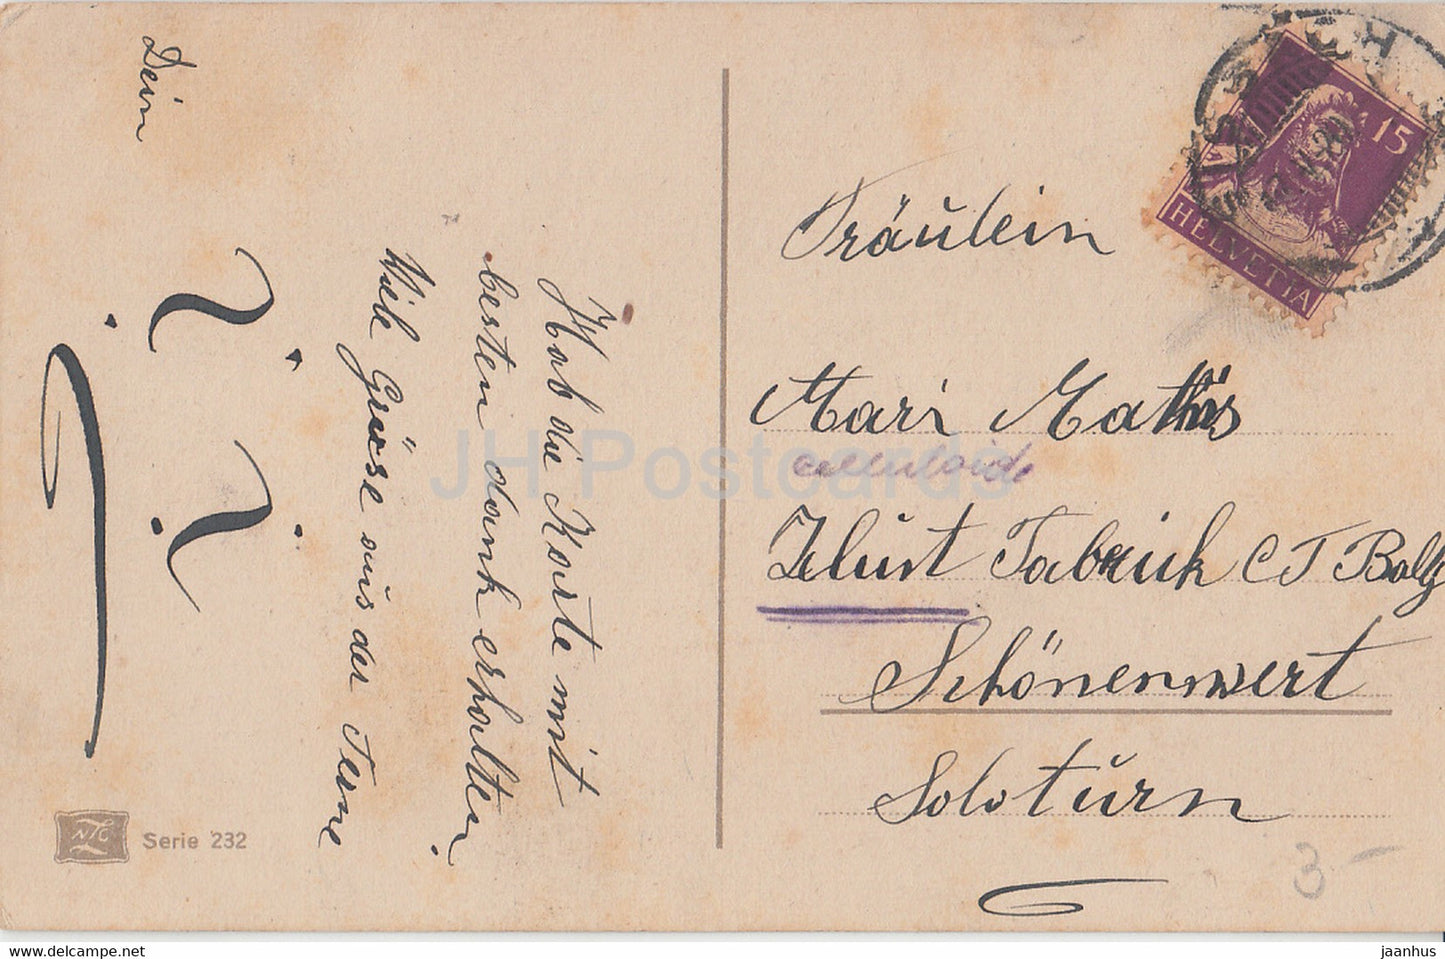 Hab die Karte mit
besten dank erhalten.
Viele Grüsse aus der Ferne
Dein
? ?
Serie 232
Fräulein
Mari Mathis
celluloide
Fabrick C F Bally
Schönenwert
Soloturn
15
HELVETIA
3 -
JH Postcards
www.delcampe.net
jaanhus